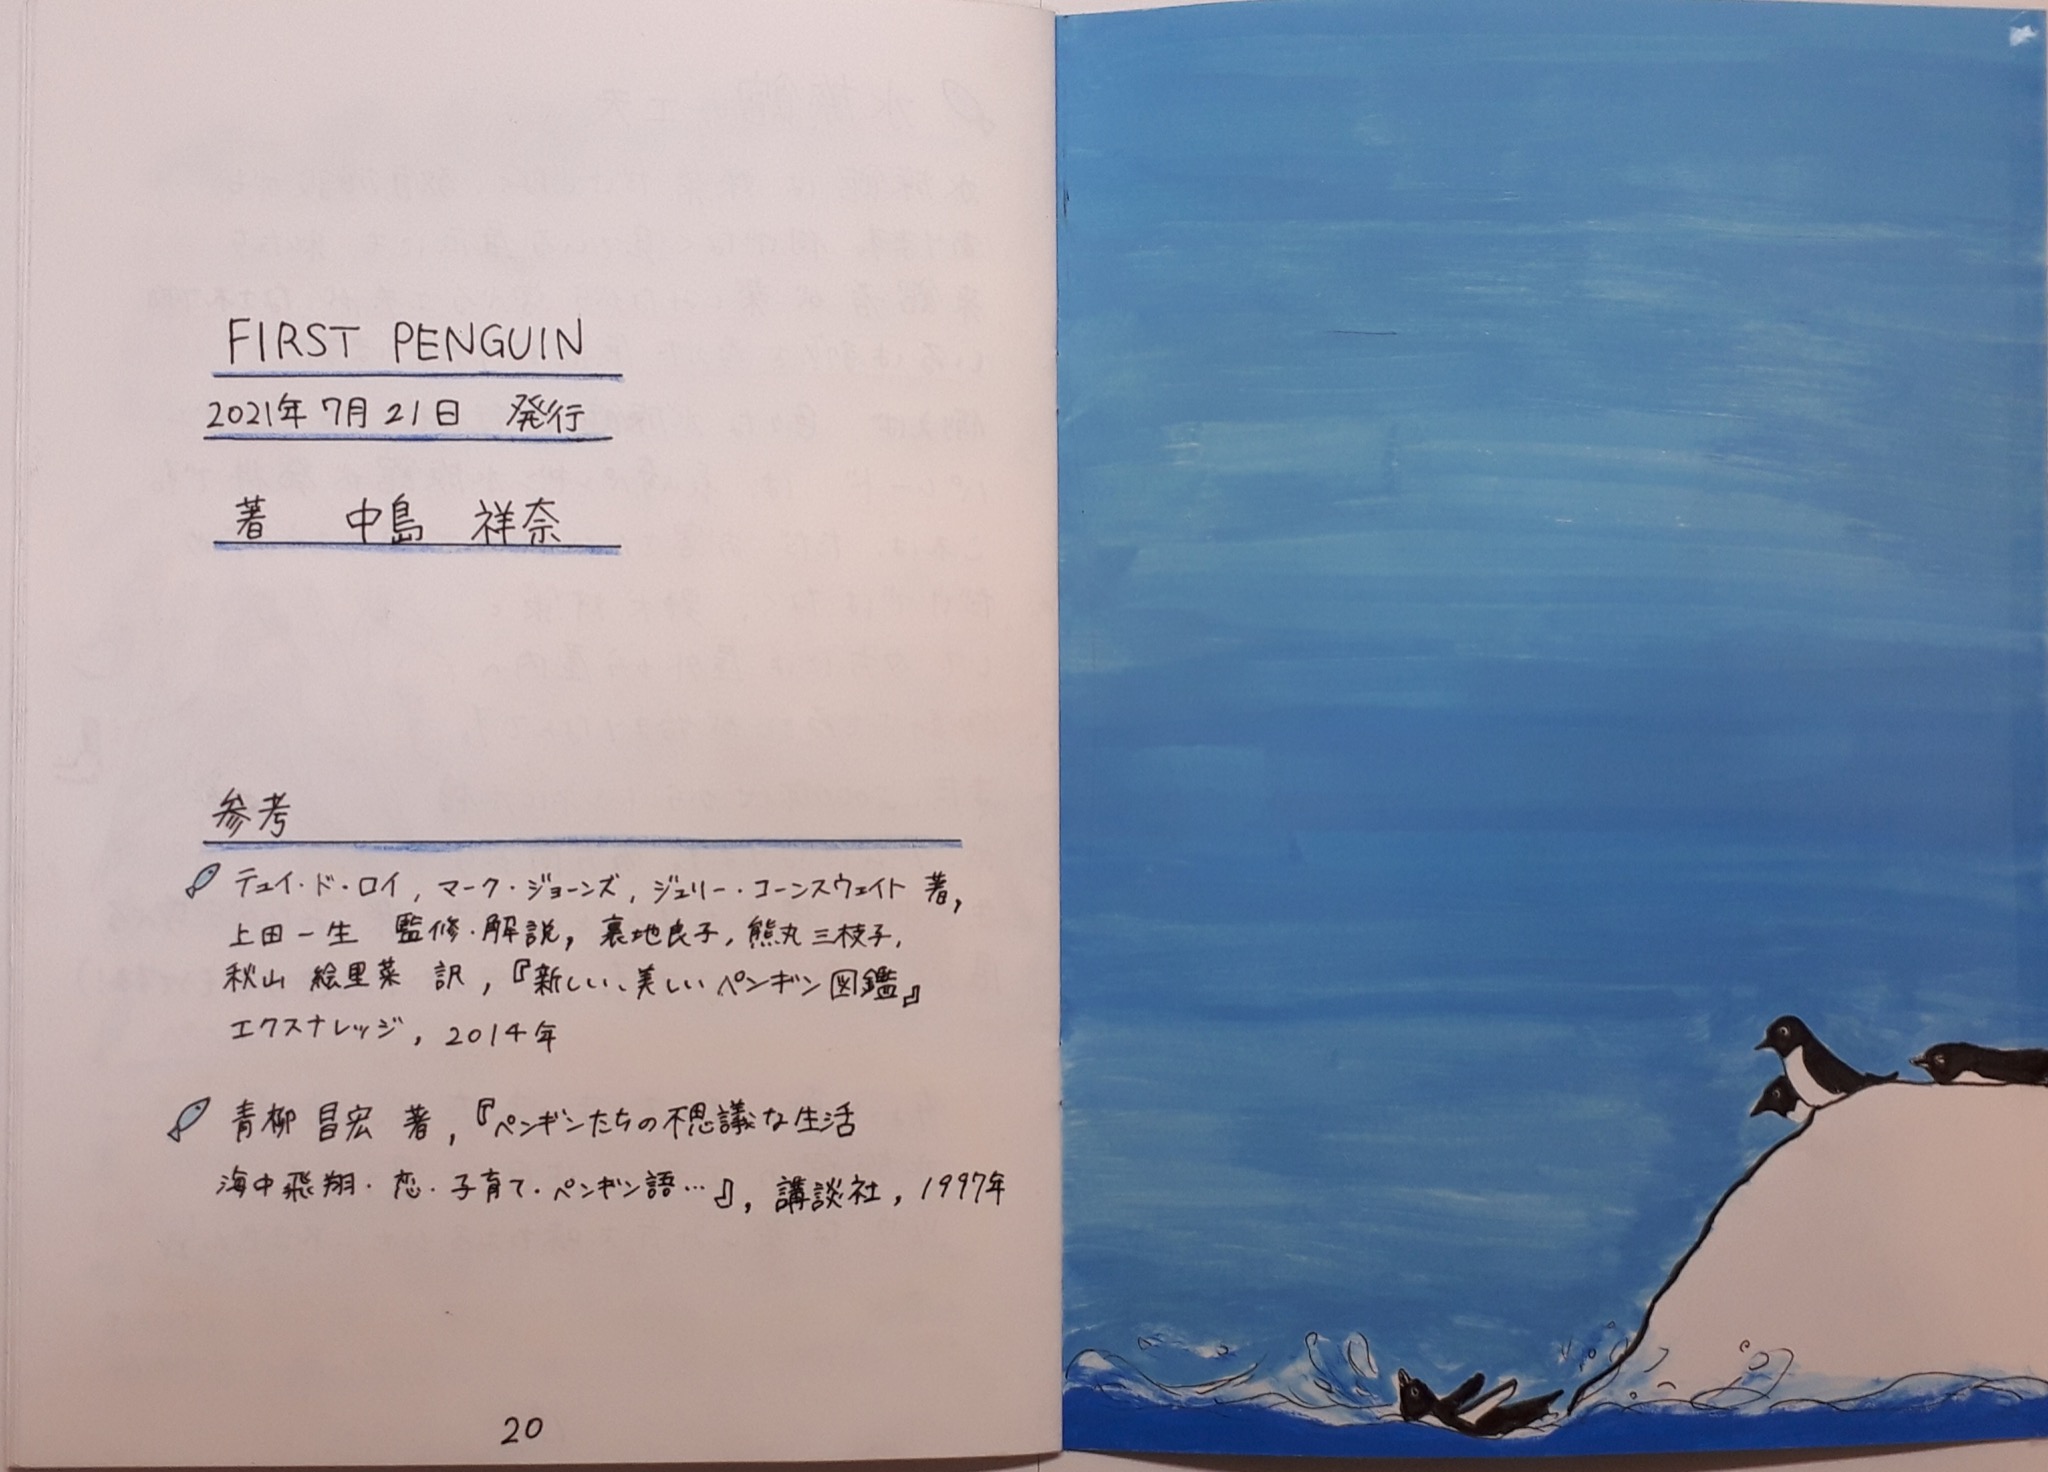 FIRST PENGUIN
2021年7月21日 発行
著 中島 祥奈
参考
テュイ・ド・ロイ, マーク・ジョーンズ, ジュリー・コーンスウェイト 著,
上田一生 監修・解説, 裏地良子, 熊丸三枝子,
秋山 絵里菜 訳, 『新しい、美しいペンギン図鑑』
エクスナレッジ, 2014年
青柳 昌宏 著, 『ペンギンたちの不思議な生活
海中飛翔・恋・子育て・ペンギン語…』, 講談社, 1997年
20